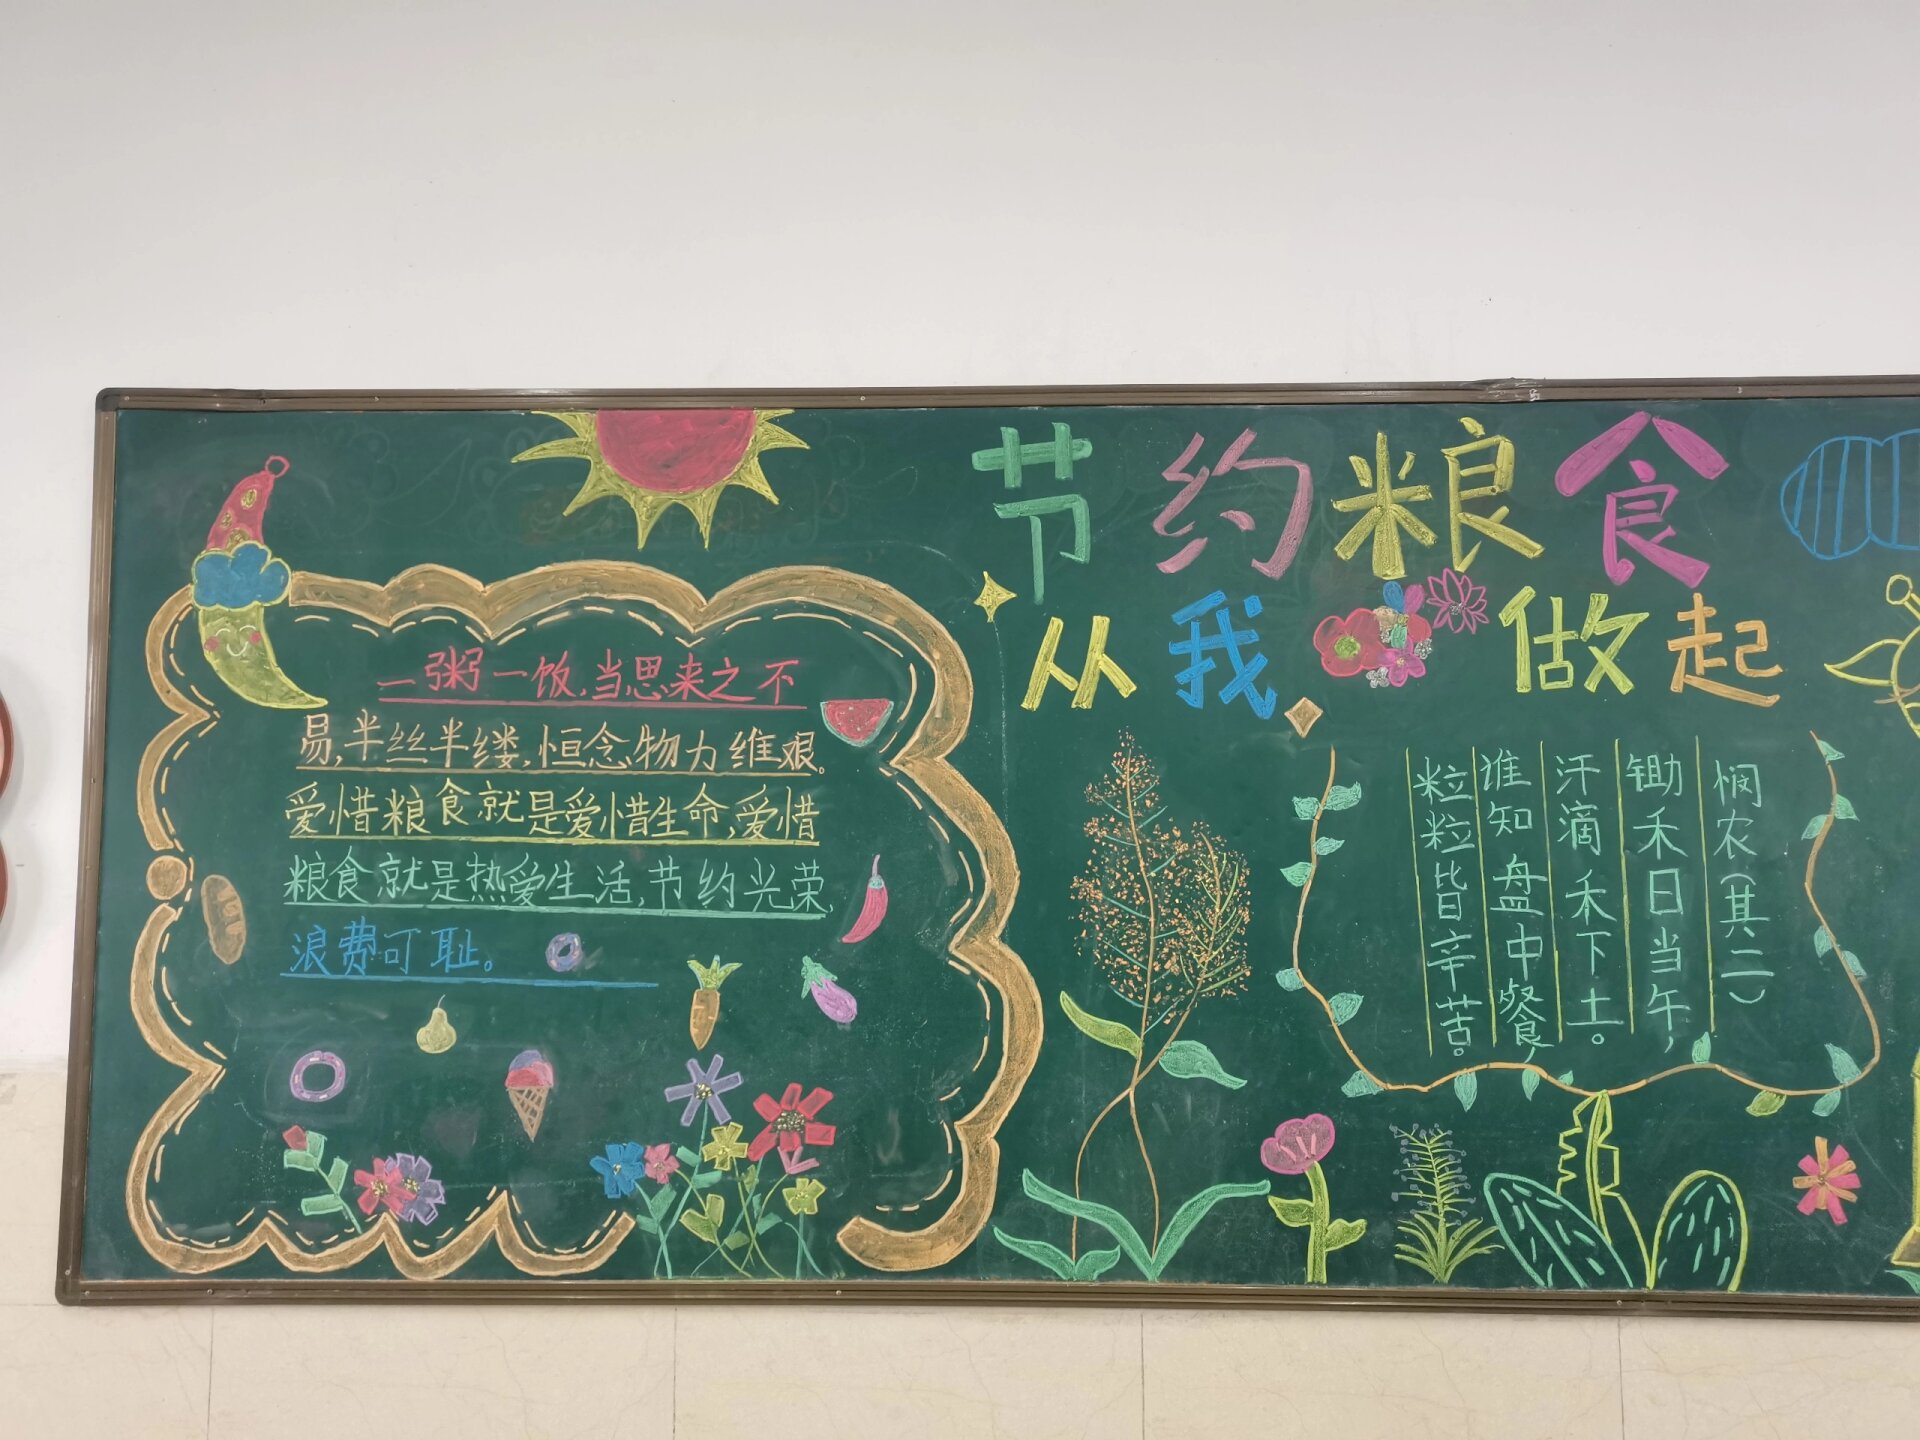 节约粮食
从我做起
一粥一饭,当思来之不
易,半丝半缕,恒念物力维艰。
爱惜粮食就是爱惜生命,爱惜
粮食就是热爱生活,节约光荣,
浪费可耻。
悯农(其二)
锄禾日当午,
汗滴禾下土。
谁知盘中餐,
粒粒皆辛苦。